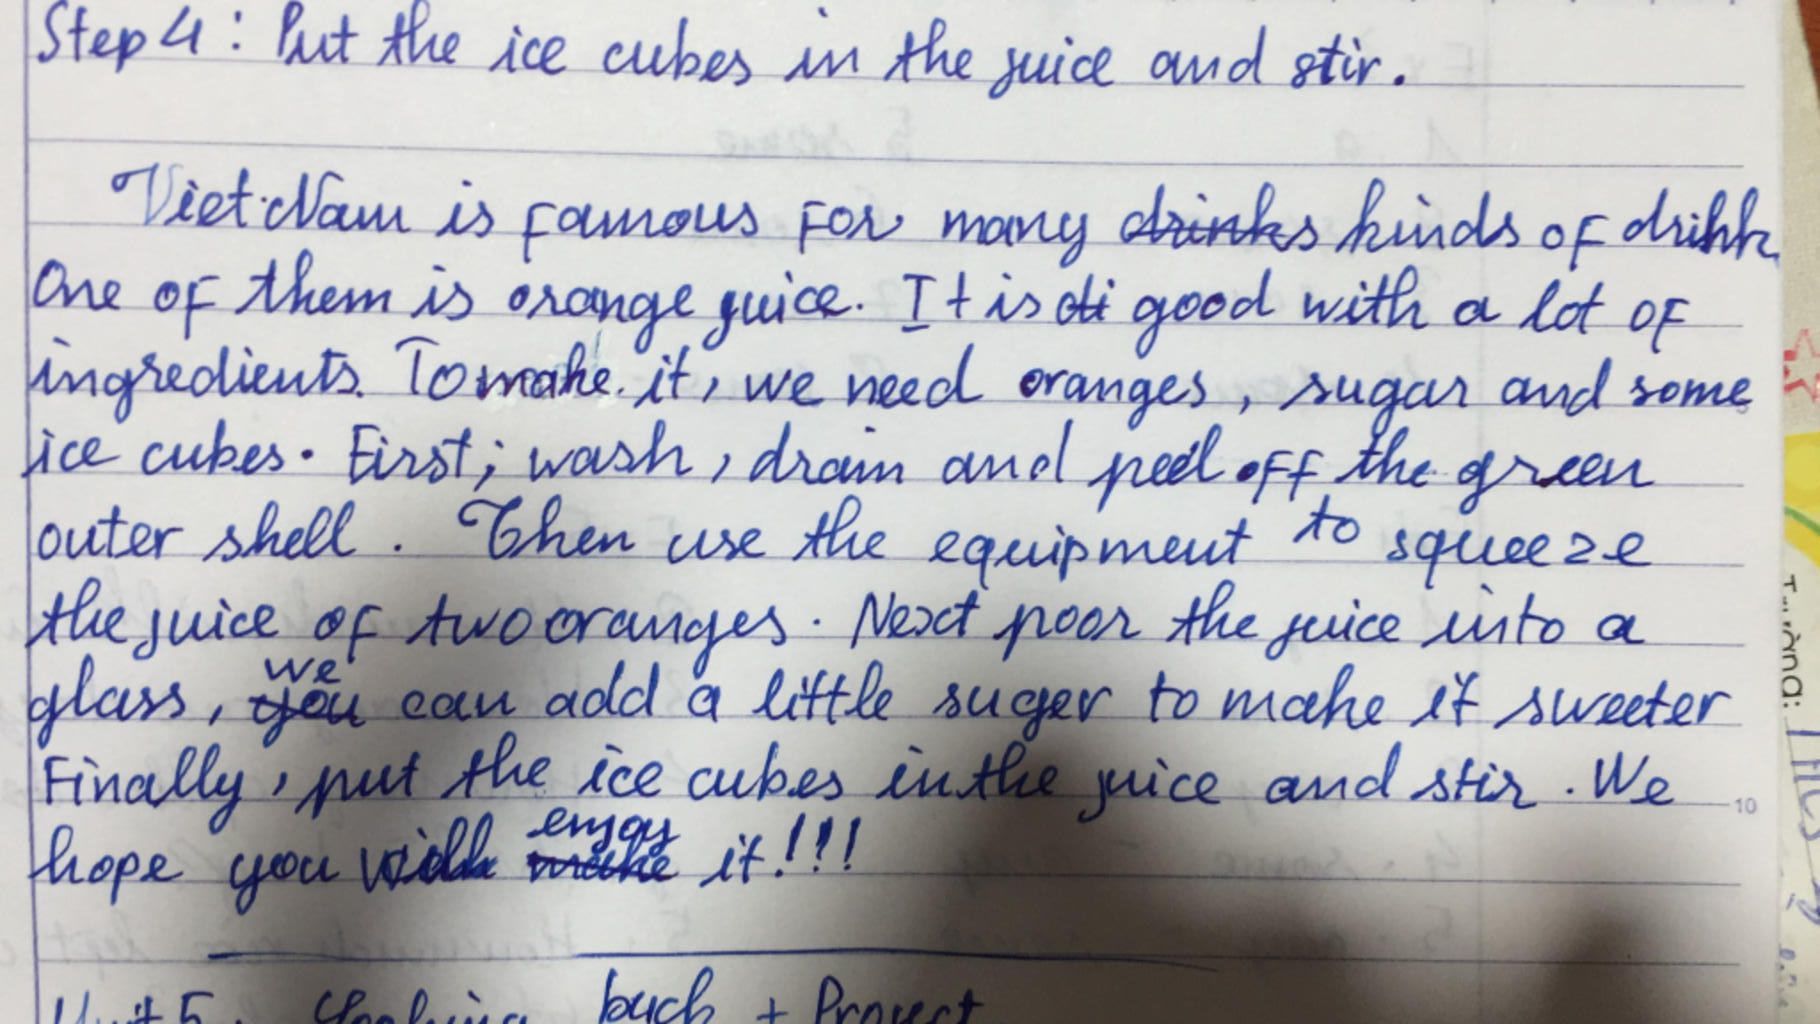 Step 4: Put the ice cubes in the juice and stir.
Viet Nam is famous for many drinks kinds of drink
One of them is orange juice. It is di good with a lot of
ingredients. To make it, we need oranges, sugar and some
ice cubes. First; wash, drain and peel off the green
outer shell. Then use the equipment to squeeze
the juice of two oranges. Next poor the juice into a
we
glass, you can add a little suger to make it sweeter
Finally, put the ice cubes in the juice and stir. We
10
enjoy
hope you will make it!!!
Unit 5: Looking back + Project
Trường: